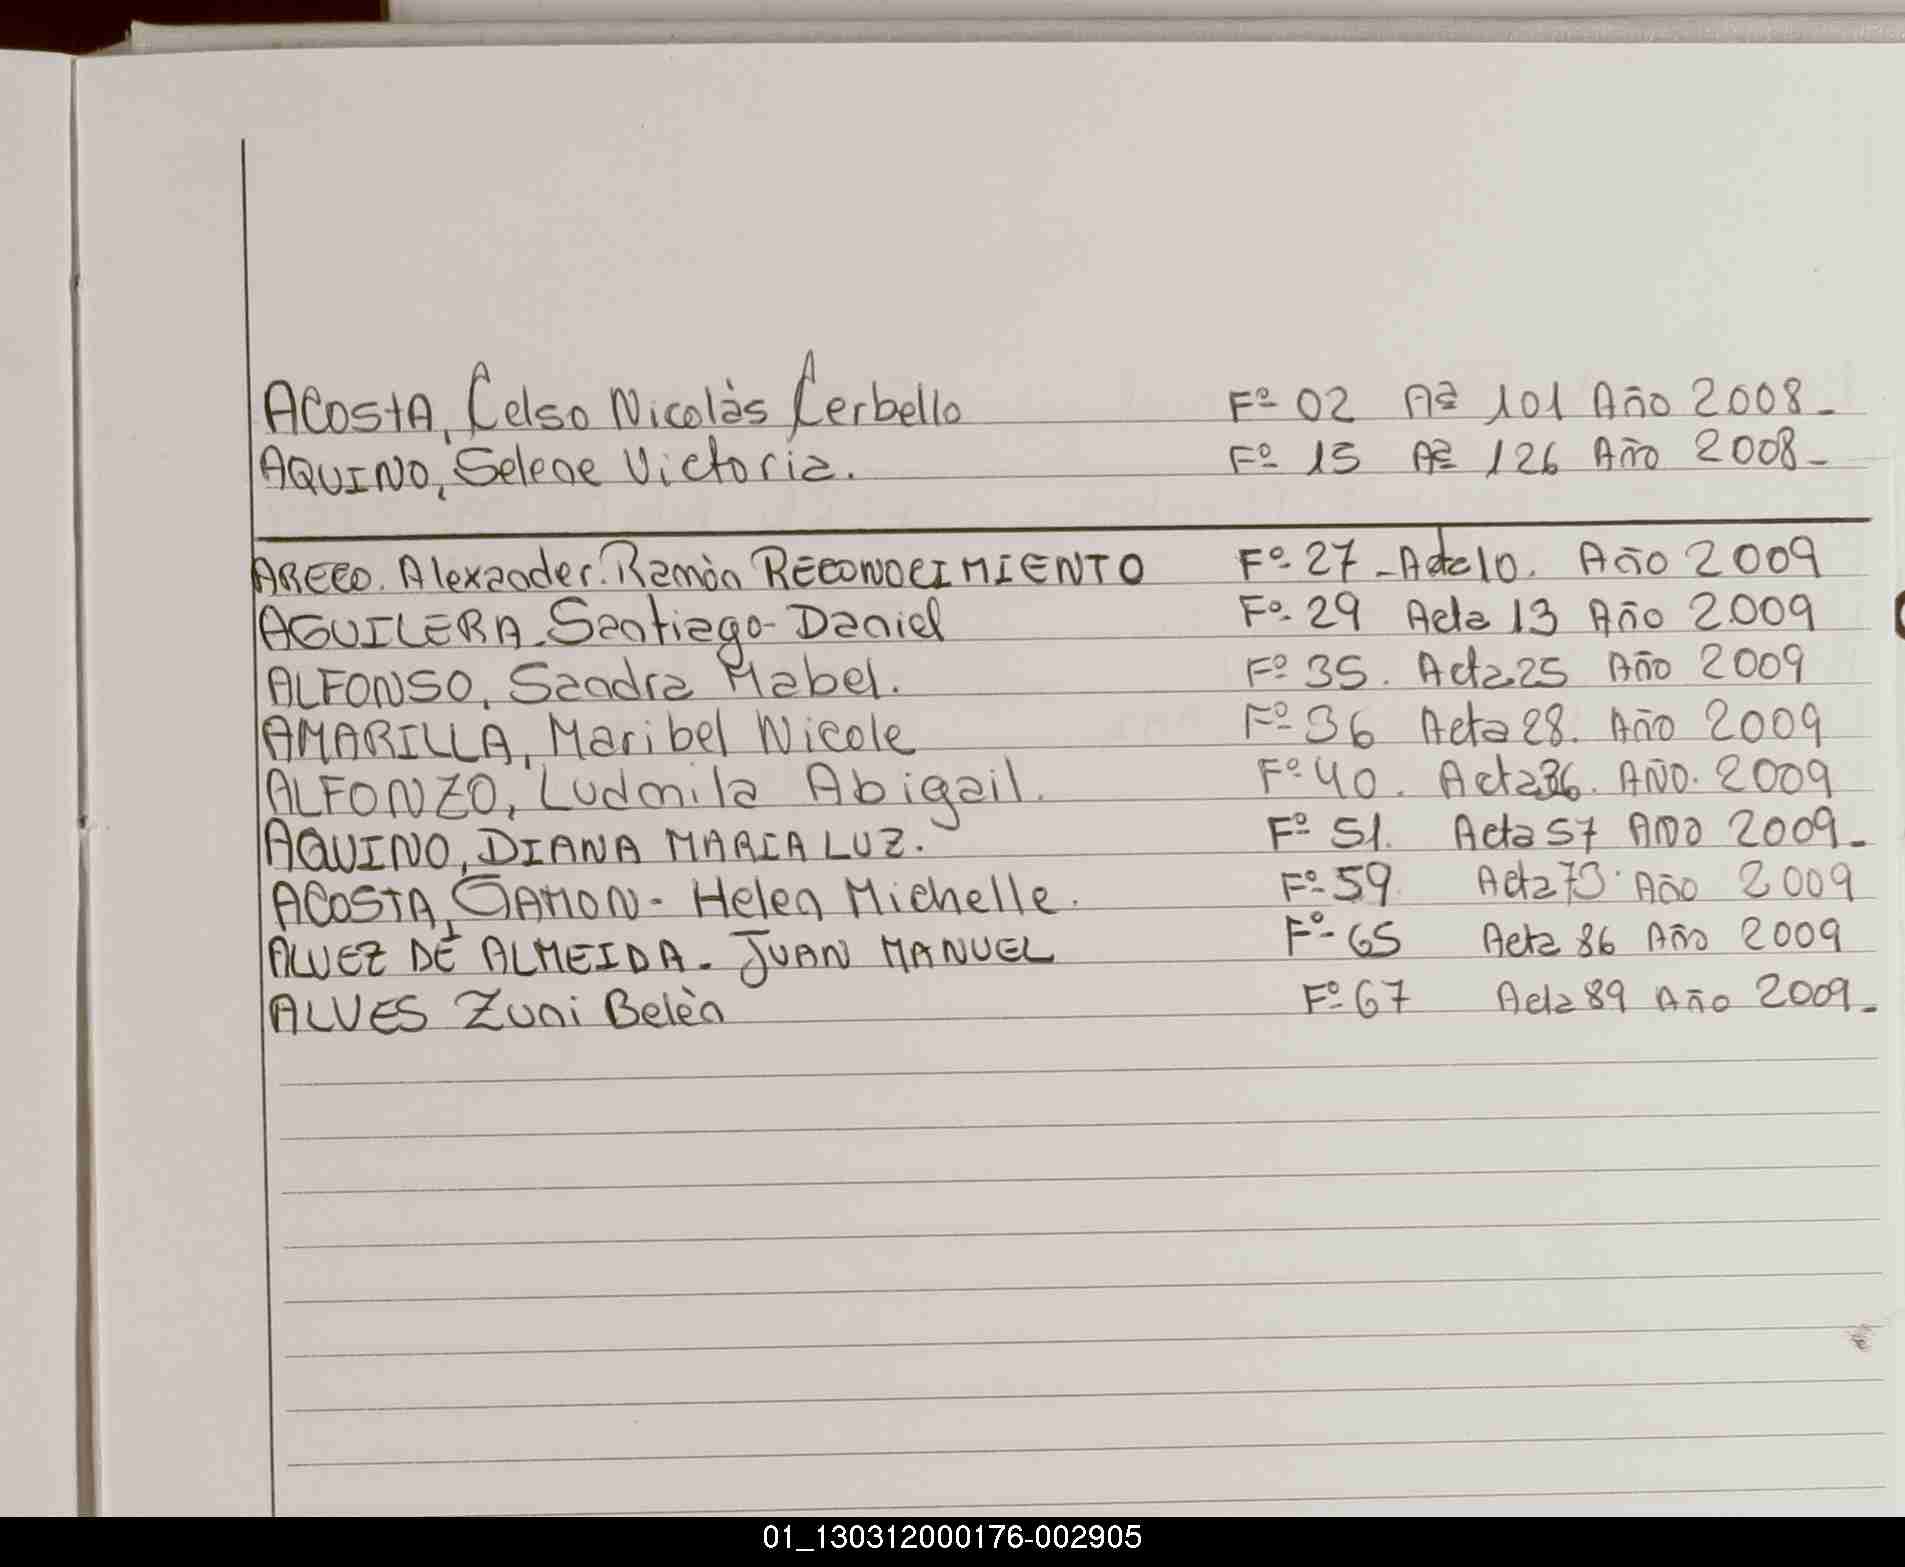 ACOSTA, Celso Nicolàs Cerbello Fº 02 Aª 101 Año 2008-
AQUINO, Selene Victoria. Fº 15 Aª 126 Año 2008-
ARECO. Alexander. Ramòn RECONOCIMIENTO Fº 27 - Acta 10. Año 2009
AGUILERA. Santiago - Daniel Fº 29 Acta 13 Año 2009
ALFONSO, Sandra Mabel. Fº 35. Acta 25 Año 2009
AMARILLA, Maribel Nicole Fº 36 Acta 28. Año 2009
ALFONZO, Ludmila Abigail. Fº 40. Acta 36. AÑO. 2009
AQUINO, DIANA MARIA LUZ. Fº 51. Acta 57 Año 2009-
ACOSTA, GAMON - Helen Michelle. Fº 59 Acta 73. Año 2009
ALVEZ DE ALMEIDA - JUAN MANUEL Fº 65 Acta 86 Año 2009
ALVES Zuni Belèn Fº 67 Acta 89 Año 2009-
01_130312000176-002905